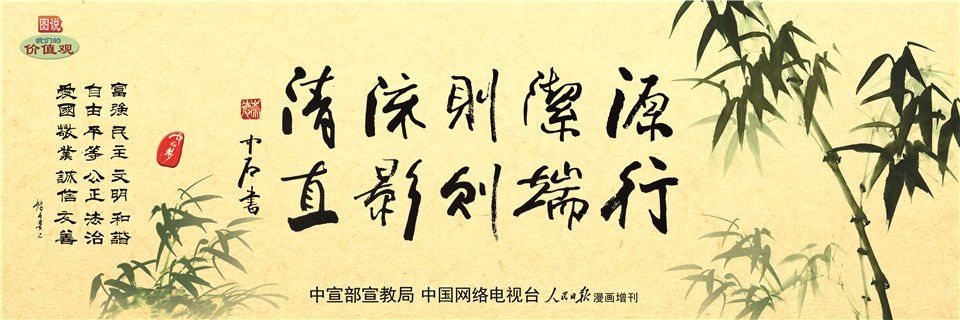 源潔則流清
行端則影直
中石書
富強民主文明和諧
自由平等公正法治
愛國敬業誠信友善
图说
我们的
价值观
中宣部宣教局 中国网络电视台 人民日报 漫画增刊